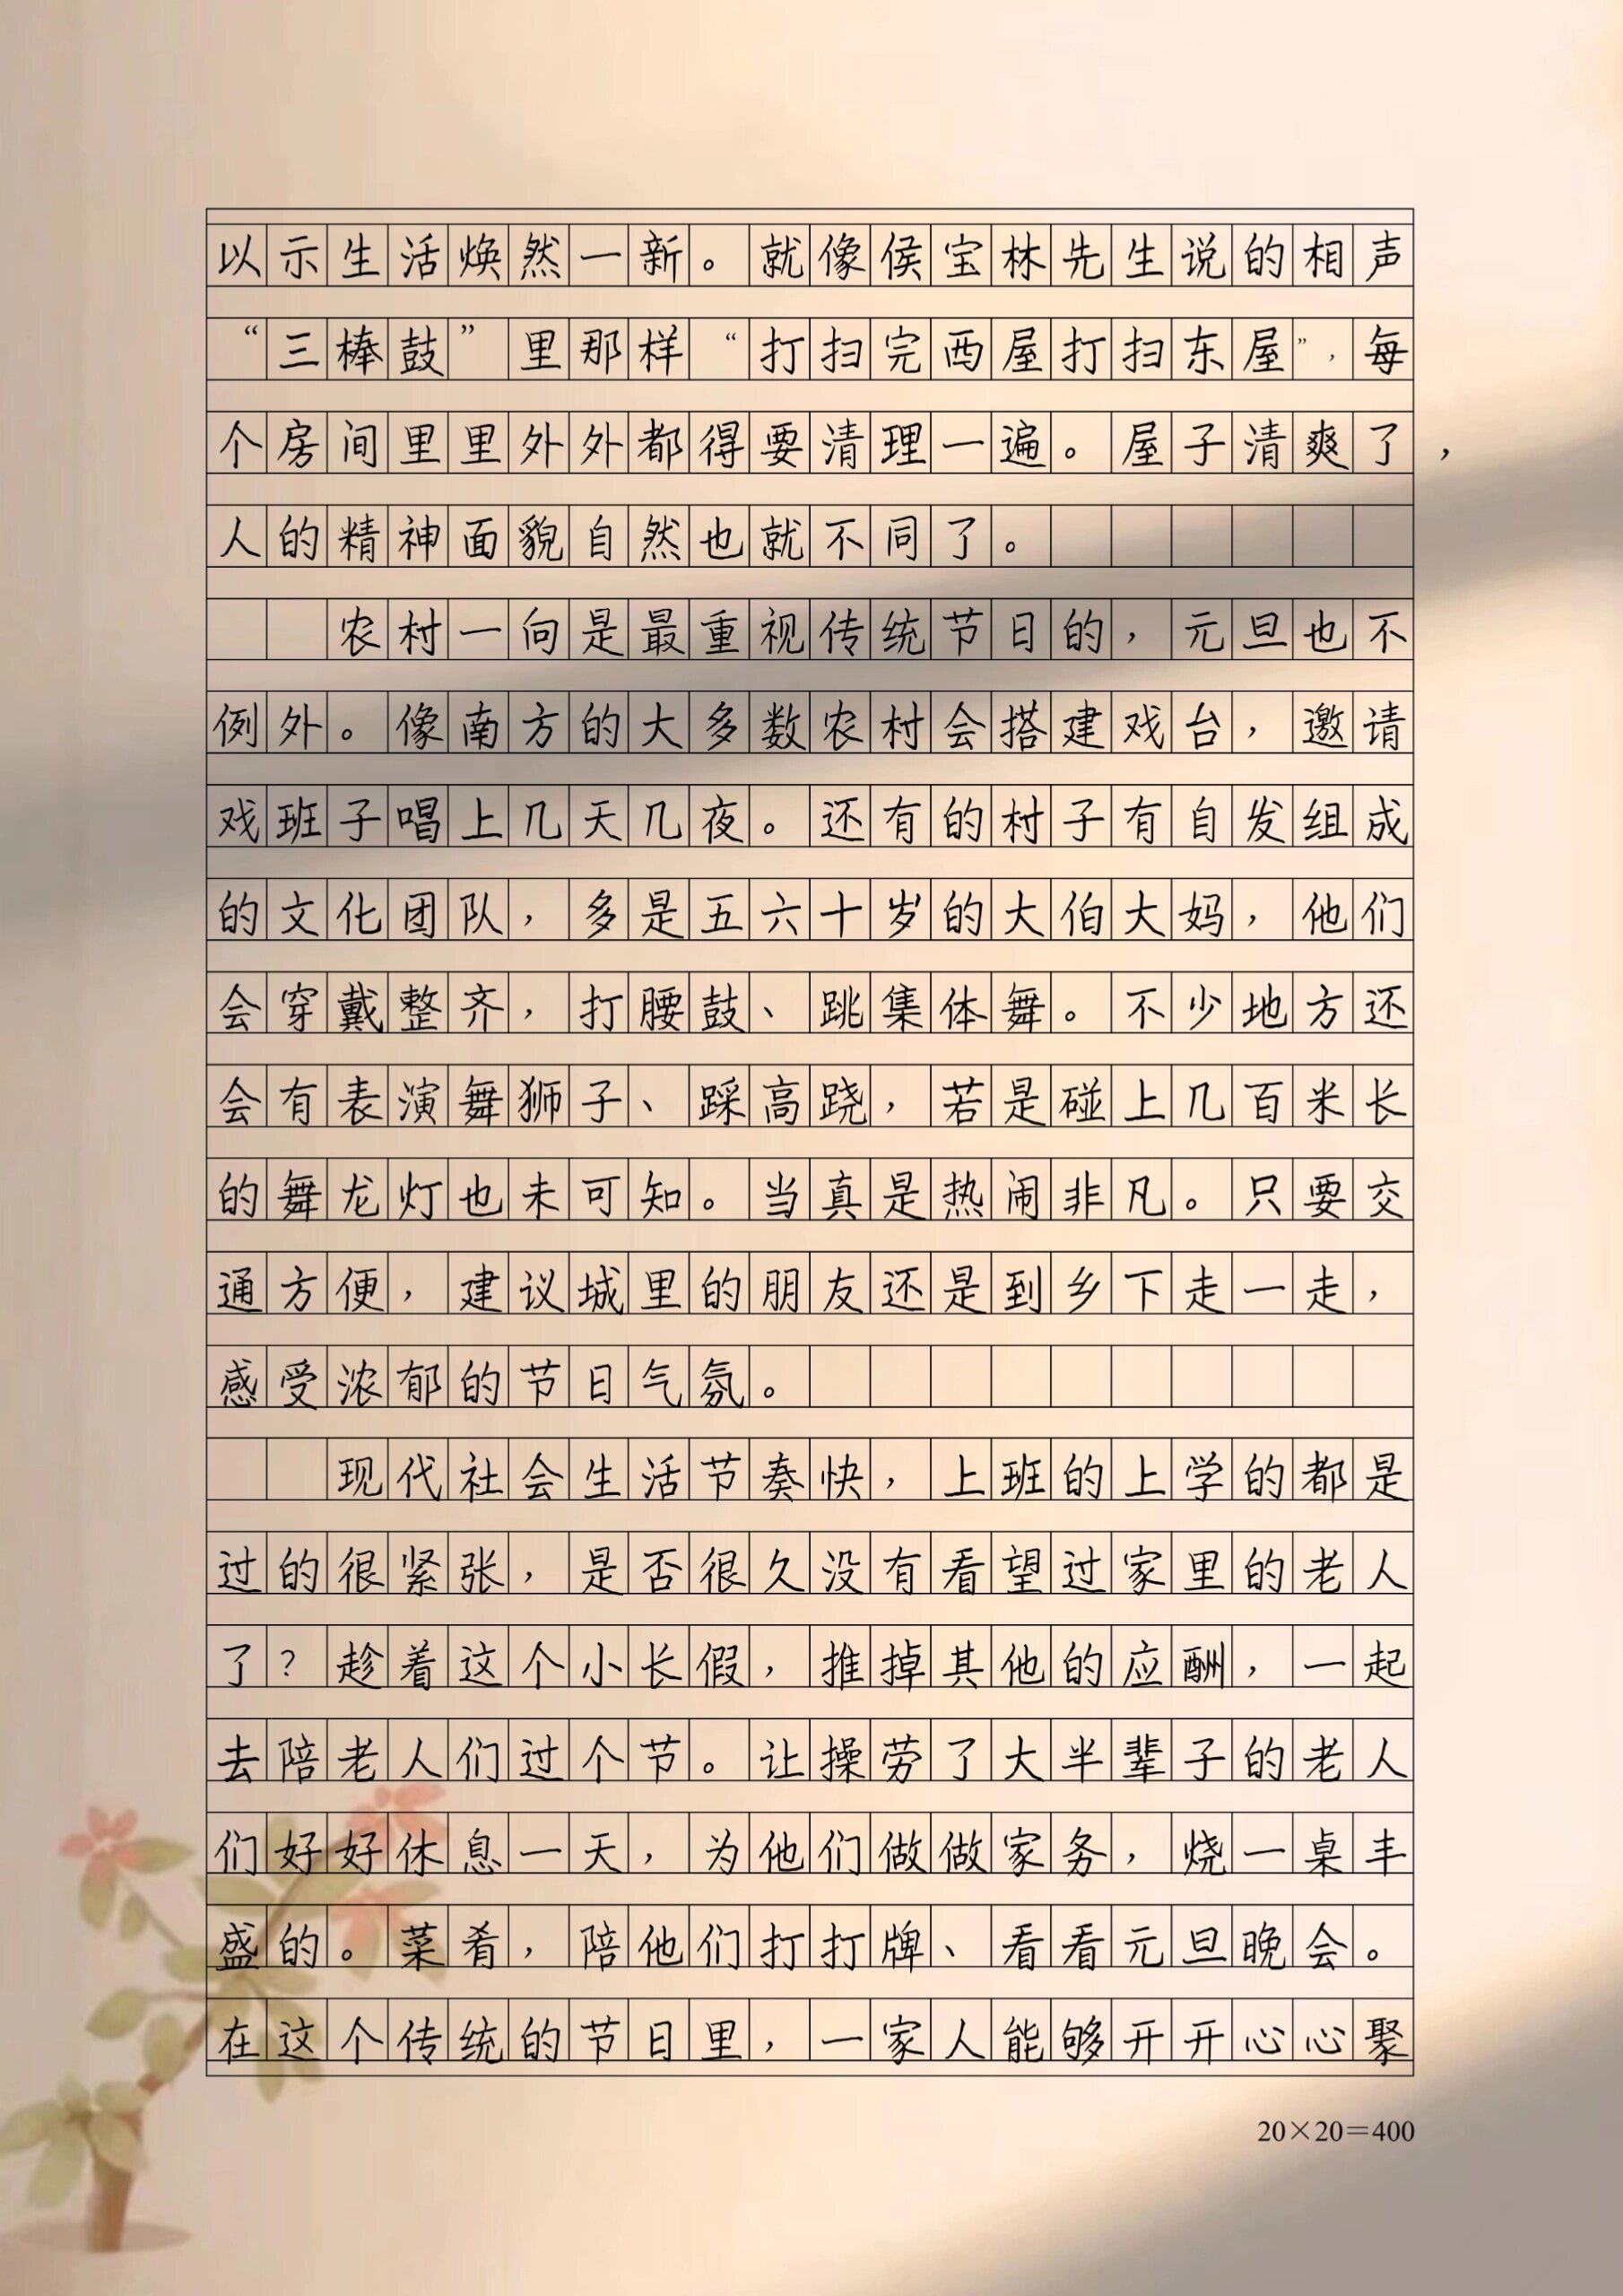 以示生活焕然一新。就像侯宝林先生说的相声
“三棒鼓”里那样“打扫完西屋打扫东屋”，每
个房间里里外外都得要清理一遍。屋子清爽了，
人的精神面貌自然也就不同了。
农村一向是最重视传统节日的，元旦也不
例外。像南方的大多数农村会搭建戏台，邀请
戏班子唱上几天几夜。还有的村子有自发组成
的文化团队，多是五六十岁的大伯大妈，他们
会穿戴整齐，打腰鼓、跳集体舞。不少地方还
会有表演舞狮子、踩高跷，若是碰上几百米长
的舞龙灯也未可知。当真是热闹非凡。只要交
通方便，建议城里的朋友还是到乡下走一走，
感受浓郁的节日气氛。
现代社会生活节奏快，上班的上学的都是
过的很紧张，是否很久没有看望过家里的老人
了？趁着这个小长假，推掉其他的应酬，一起
去陪老人们过个节。让操劳了大半辈子的老人
们好好休息一天，为他们做做家务，烧一桌丰
盛的。菜肴，陪他们打打牌、看看元旦晚会。
在这个传统的节日里，一家人能够开开心心聚
20×20＝400